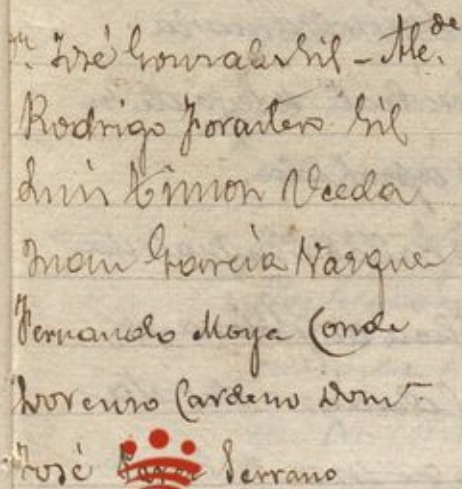 José Gonzalez Gil - Alcde
Rodrigo Forastero Gil
Luis Limon Uceda
Juan Garcia Vazquez
Fernando Moya Conde
Lorenzo Cardeno Domz
José Serrano